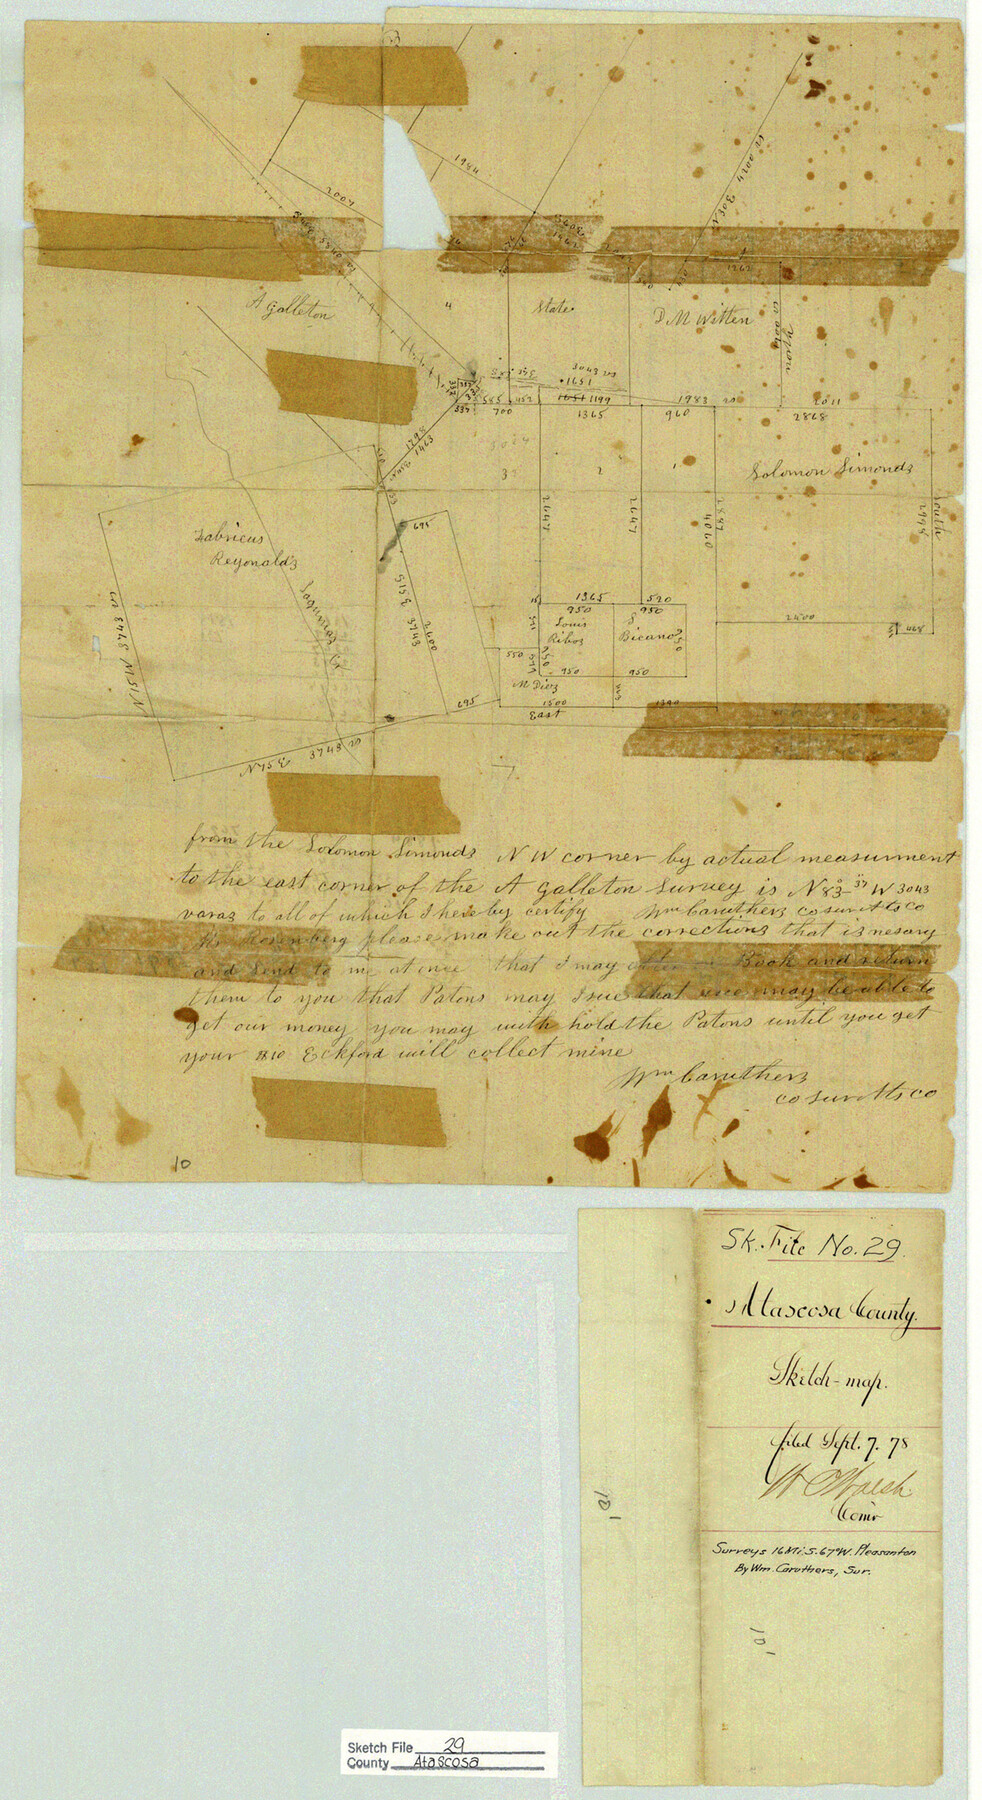 1944
2007
N30E 4200 vs
1962
1262
A Galleton
4
State
D M Witten
North
3043 vs
1651
1651 1199
1983
2011
585
452
700
1365
960
2868
537
1798
1463
3
2
1
Solomon Simonds
South
2998
2647
2647
2887
4060
695
Fabricus
Reyonalds
S15E 3743
2600
N15W 3743 vs
1365
520
950
950
Louis
Ribos
S
Bicano
250
2500
468
550
950
950
M Diez
1500
1390
East
695
N75E 3743 vs
from the Solomon Simonds N W corner by actual measurment
to the east corner of the A Galleton Survey is N 83° 37 W 3043
varas to all of which I hereby certify Wm Caruthers co sur Ats Co
Mr Rosenberg please make out the corrections that is nesary
and send to me at once that I may Book and return
them to you that Patons may Isue that we may be able to
get our money you may with hold the Patons until you get
your $10 Eckford will collect mine
Wm Caruthers
co sur Ats Co
10
Sk. File No. 29.
Atascosa County.
Sketch-map.
filed Sept. 7. 78
W C Walsh
Com'r
Surveys 16 Mi. S. 67° W. Pleasanton
By Wm. Caruthers, Sur.
101
101
Sketch File 29
County Atascosa